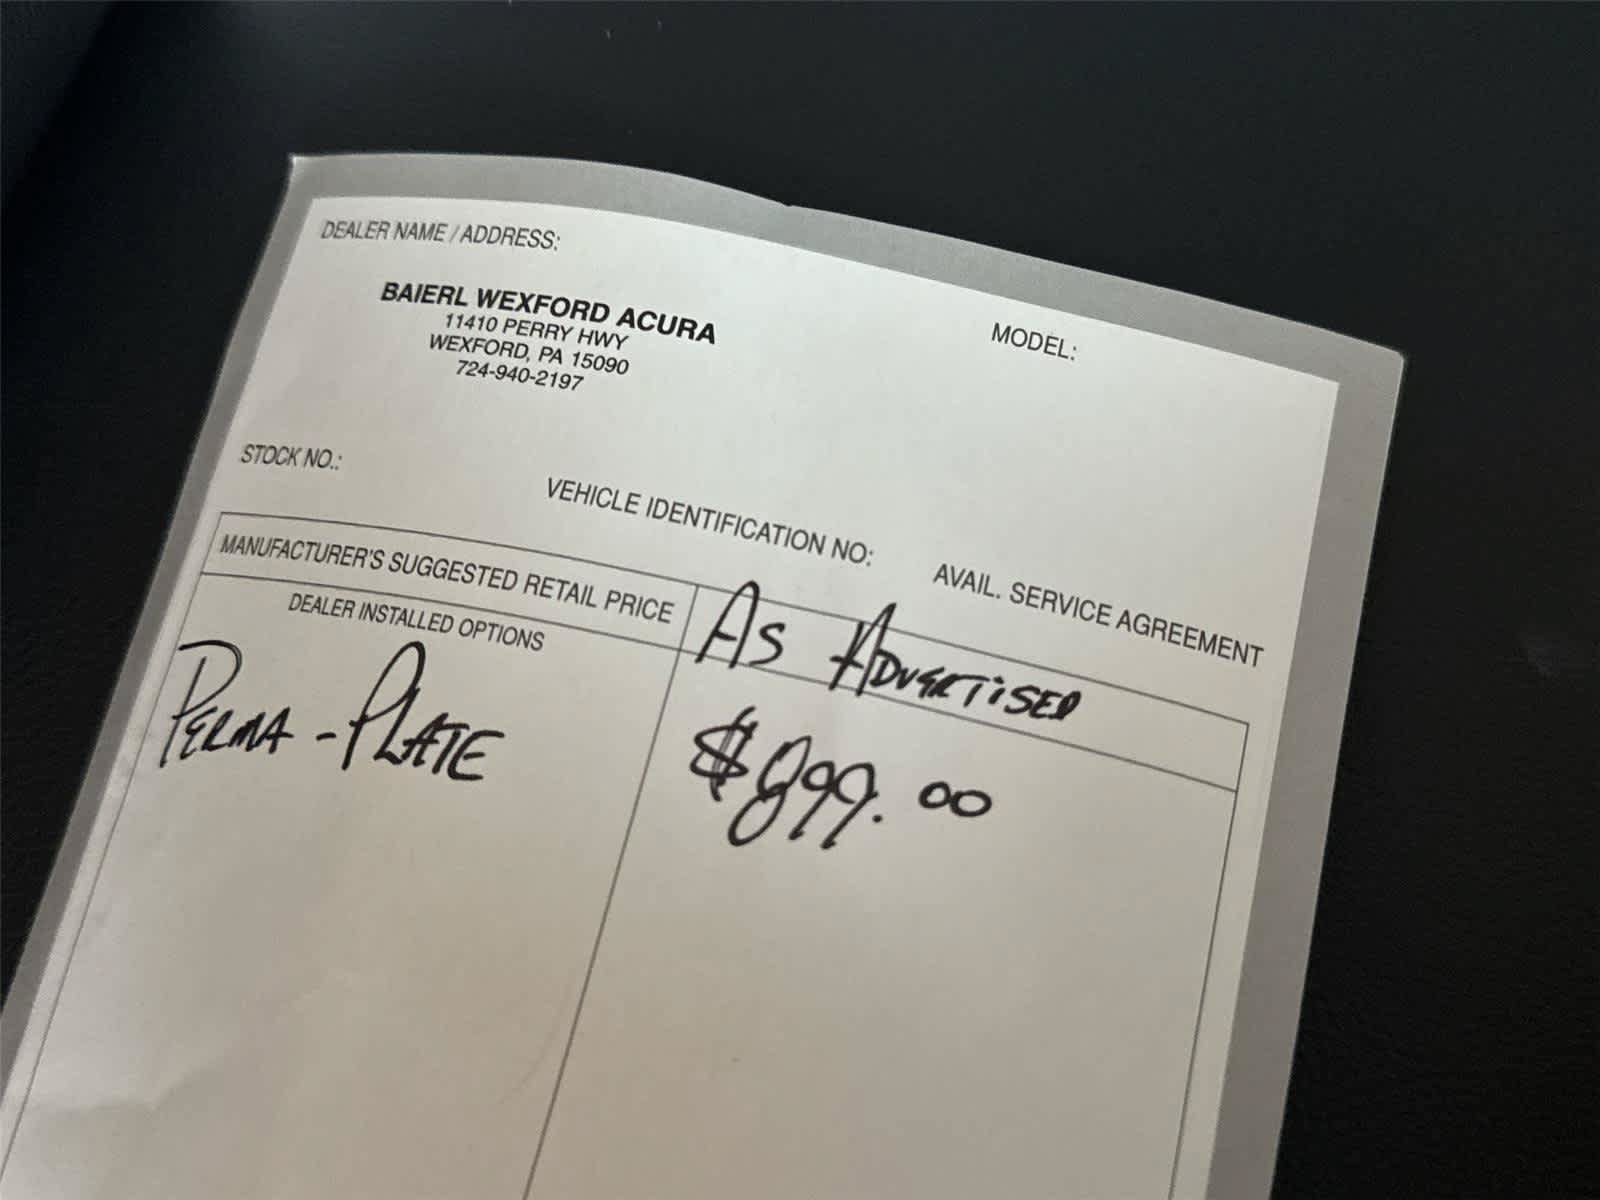 DEALER NAME / ADDRESS:
BAIERL WEXFORD ACURA
11410 PERRY HWY
WEXFORD, PA 15090
724-940-2197
MODEL:
STOCK NO.:
VEHICLE IDENTIFICATION NO:
AVAIL. SERVICE AGREEMENT
MANUFACTURER'S SUGGESTED RETAIL PRICE
AS ADVERTISED
DEALER INSTALLED OPTIONS
PERMA-PLATE
$899.00